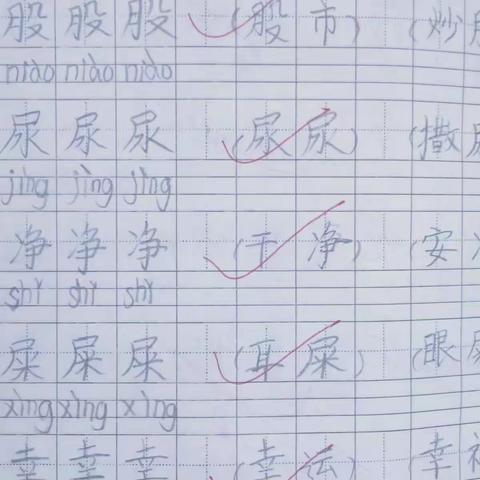 股 股 股 (股市) (炒
niào niào niào
尿 尿 尿 (尿尿) (撒尿
jìng jìng jìng
净 净 净 (干净) (安
shǐ shǐ shǐ
屎 屎 屎 (耳屎) (眼屎
xìng xìng xìng
幸 幸 幸 (幸运) (幸福